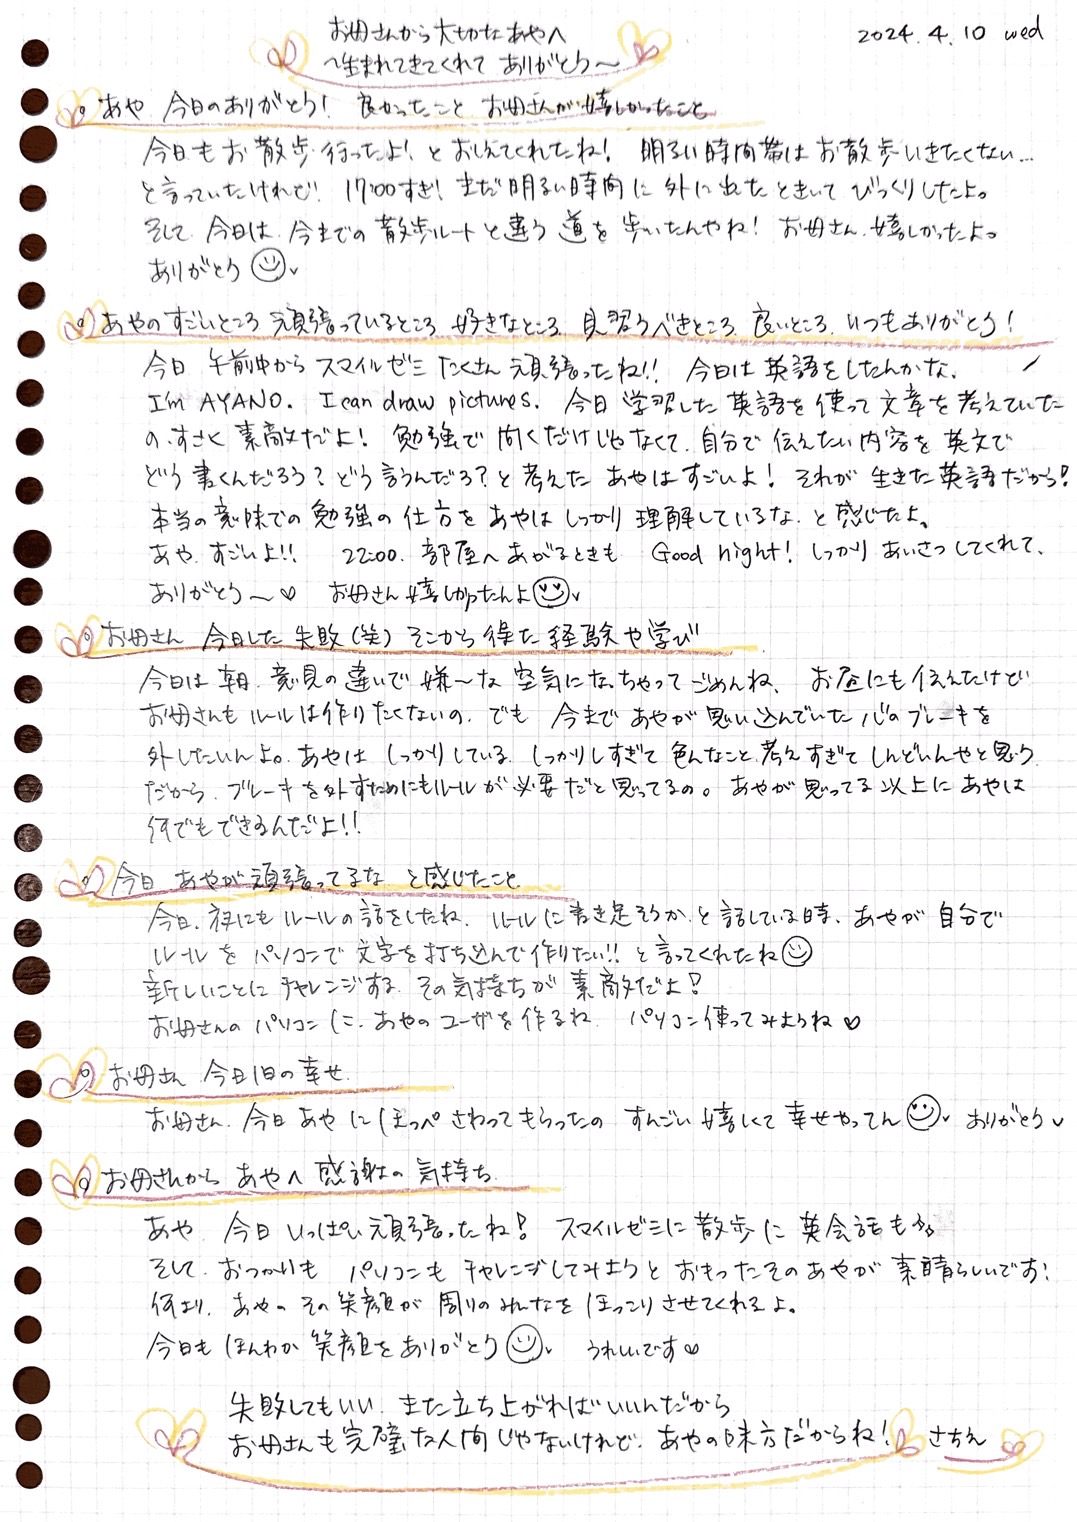 お母さんから大切なあやへ
2024.4.10 wed
〜生まれてきてくれて ありがとう〜
あや 今日のありがとう! 良かったこと お母さんが嬉しかったこと
今日もお散歩行ったよ!とおしえてくれたね! 明るい時間帯はお散歩いきたくない...
と言っていたけれど! 17:00すぎ! まだ明るい時間に外に出たときいてびっくりしたよ。
そして、今日は、今までの散歩ルートと違う道を歩いたんやね! お母さん、嬉しかったよ。
ありがとう
あやのすごいところ 頑張っているところ 好きなところ 見習うべきところ 良いところ、いつもありがとう!
今日 午前中からスマイルゼミたくさん頑張ったね!! 今日は英語をしたんかな、
I'm AYANO. I can draw pictures. 今日学習した英語を使って文章を考えていた
の、すごく素敵だよ! 勉強で聞くだけじゃなくて、自分で伝えたい内容を英文で
どう書くんだろう?どう言うんだろ?と考えたあやはすごいよ! それが生きた英語だから!
本当の意味での勉強の仕方をあやはしっかり理解しているな、と感じたよ。
あや、すごいよ!! 22:00、部屋へあがるときも Good night! しっかりあいさつしてくれて、
ありがとう〜♡ お母さん嬉しかったんよ
お母さん 今日した失敗(笑)そこから得た経験や学び
今日は朝、意見の違いで嫌〜な空気になっちゃってごめんね、 お昼にも伝えたけど
お母さんもルールは作りたくないの、でも 今まであやが思い込んでいた心のブレーキを
外したいんよ。あやはしっかりしている、しっかりしすぎて色んなこと考えすぎてしんどいんやと思う
だから、ブレーキを外すためにもルールが必要だと思ってるの。あやが思ってる以上にあやは
何でもできるんだよ!!
今日 あやが頑張ってるな と感じたこと
今日、夜にもルールの話をしたね、ルールに書き足そうか、と話している時、あやが自分で
ルールをパソコンで文字を打ち込んで作りたい!!と言ってくれたね
新しいことにチャレンジする、その気持ちが素敵だよ!
お母さんのパソコンに、あやのユーザを作るね、 パソコン使ってみようね♡
お母さん 今日1日の幸せ
お母さん、今日あやにほっぺさわってもらったの すんごい嬉しくて幸せやってん ありがとう
お母さんから あやへ 感謝の気持ち
あや、今日いっぱい頑張ったね! スマイルゼミに散歩に英会話も
そして、おつかいも パソコンもチャレンジしてみようとおもったそのあやが素晴らしいです!
何より、あやのその笑顔が周りのみんなをほっこりさせてくれるよ。
今日もほんわか笑顔をありがとう うれしいです♡
失敗してもいい、また立ち上がればいいんだから
お母さんも完璧な人間じゃないけれど、あやの味方だからね! さちえ